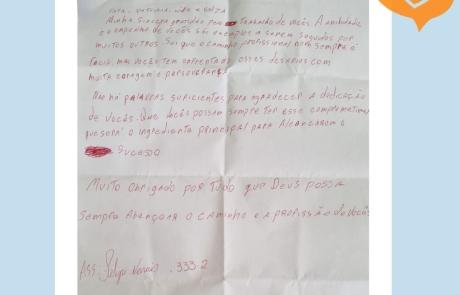 Minha sincera gratidão pelo Trabalho de vocês. A amabilidade
e o empenho de vocês são exemplos a serem seguidos por
muitos outros. Sei que o caminho profissional nem sempre é
facil mas vocês tem enfrentado esses desafios com
muita coragem e perseverança
Não há palavras suficientes para agradecer a dedicação
de vocês. Que vocês possam sempre ter esse comprometimento
que será o ingrediente principal para Alcançarem o
Sucesso
Muito Obrigado por Tudo que Deus possa
Sempre Abençoar o caminho e a profissão de vocês
ASS: Felipe .333-2